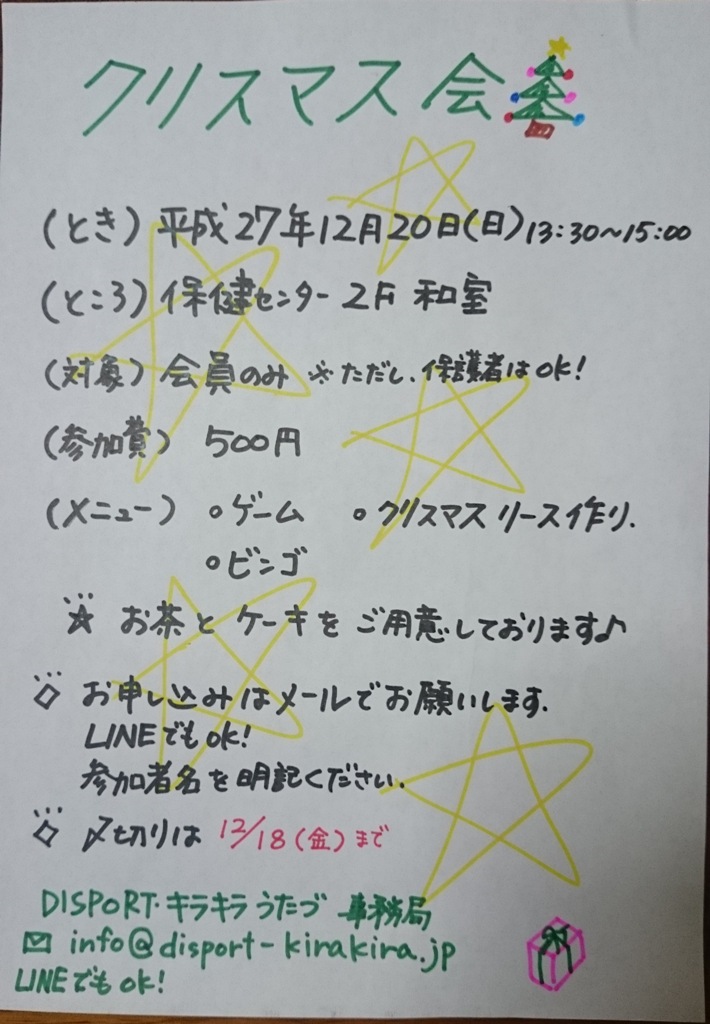 クリスマス会
(とき) 平成27年12月20日(日)13:30~15:00
(ところ) 保健センター 2F 和室
(対象) 会員のみ ※ただし、保護者はOK!
(参加費) 500円
(メニュー) ○ゲーム ○クリスマスリース作り.
○ビンゴ
☆ お茶とケーキをご用意しております♪
◇ お申し込みはメールでお願いします.
LINEでもOK!
参加者名を明記ください.
◇ 〆切りは 12/18(金)まで
DISPORT・キラキラうたづ 事務局
✉ info@disport-kirakira.jp
LINEでもOK!